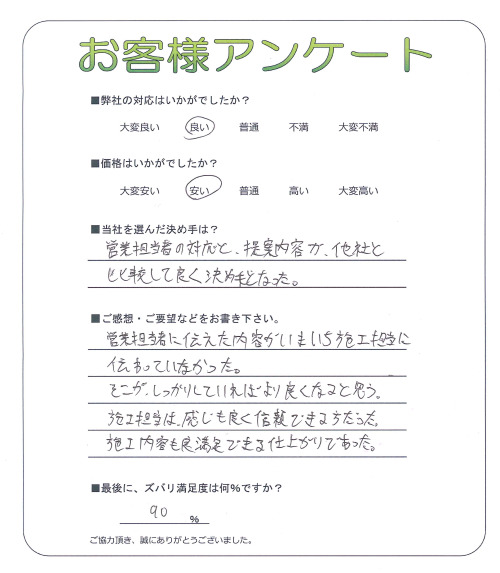 お客様アンケート
■弊社の対応はいかがでしたか？
大変良い 良い 普通 不満 大変不満
■価格はいかがでしたか？
大変安い 安い 普通 高い 大変高い
■当社を選んだ決め手は？
営業担当者の対応と、提案内容が、他社と
比較して良く決め手となった。
■ご感想・ご要望などをお書き下さい。
営業担当者に伝えた内容がいまいち施工担当に
伝わっていなかった。
そこが、しっかりしていればより良くなると思う。
施工担当は、感じも良く信頼できる方だった。
施工内容も満足できる仕上がりであった。
■最後に、ズバリ満足度は何%ですか？
90 %
ご協力頂き、誠にありがとうございました。